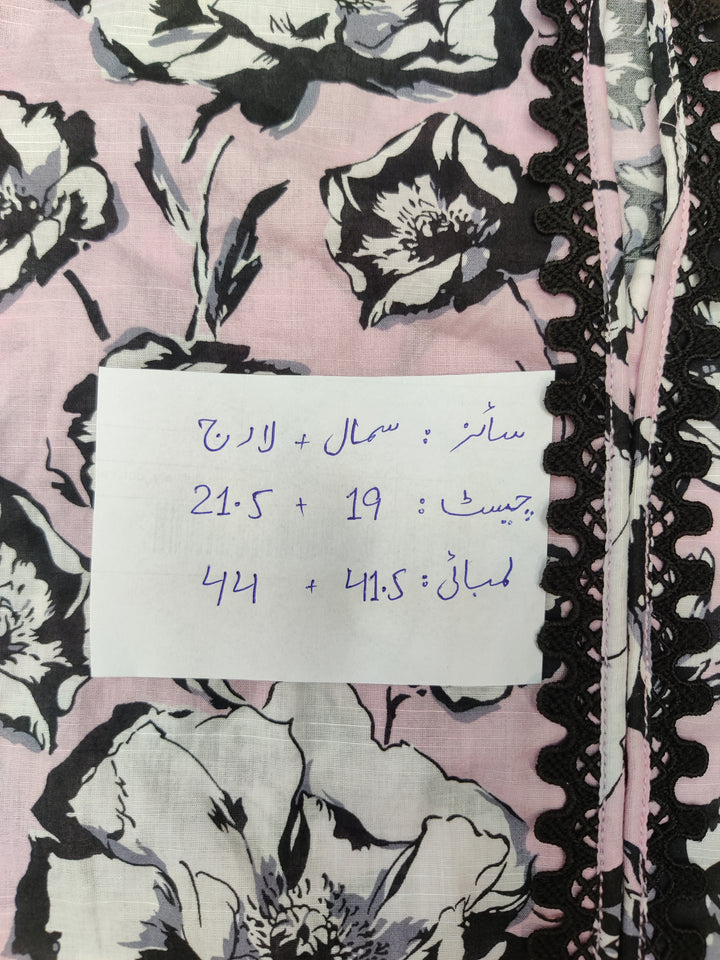 سائز : سمال + لارج
چیسٹ : 19 + 21.5
لمبائی : 41.5 + 44